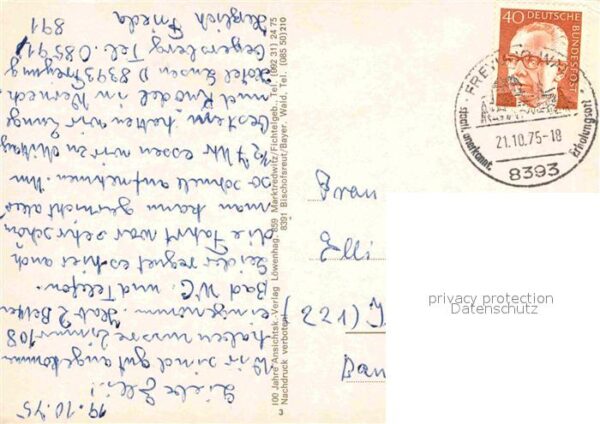 19.10.75
Liebe Elli!
Wir sind gut angekommen
haben unsre Zimmer 108
eingenommen. Hat 2 Betten
Bad W.C. und Telefon.
Leider regnet es hier auch
die Fahrt war sehr schön
man kann gar nicht alles
so schnell aufnehmen. Um
½7 Uhr essen wir zu Mittag
gestern hatten wir Lunge
und Knödel im
Hotel D 8393 Freyung
Tel. 08551/
891 Herzlich Frieda
100 Jahre Ansichtsk.-Verlag Löwenhag, 859 Marktredwitz/Fichtelgeb., Tel (092 31) 24 75
Nachdruck verboten! 8391 Bischofsreut/Bayer. Wald, Tel. (085 50) 210
3
40 DEUTSCHE BUNDESPOST
FREYUNG
21.10.75-18
staatl. anerkannt. Erholungsort
8393
Frau
Elli
(221)
privacy protection
Datenschutz